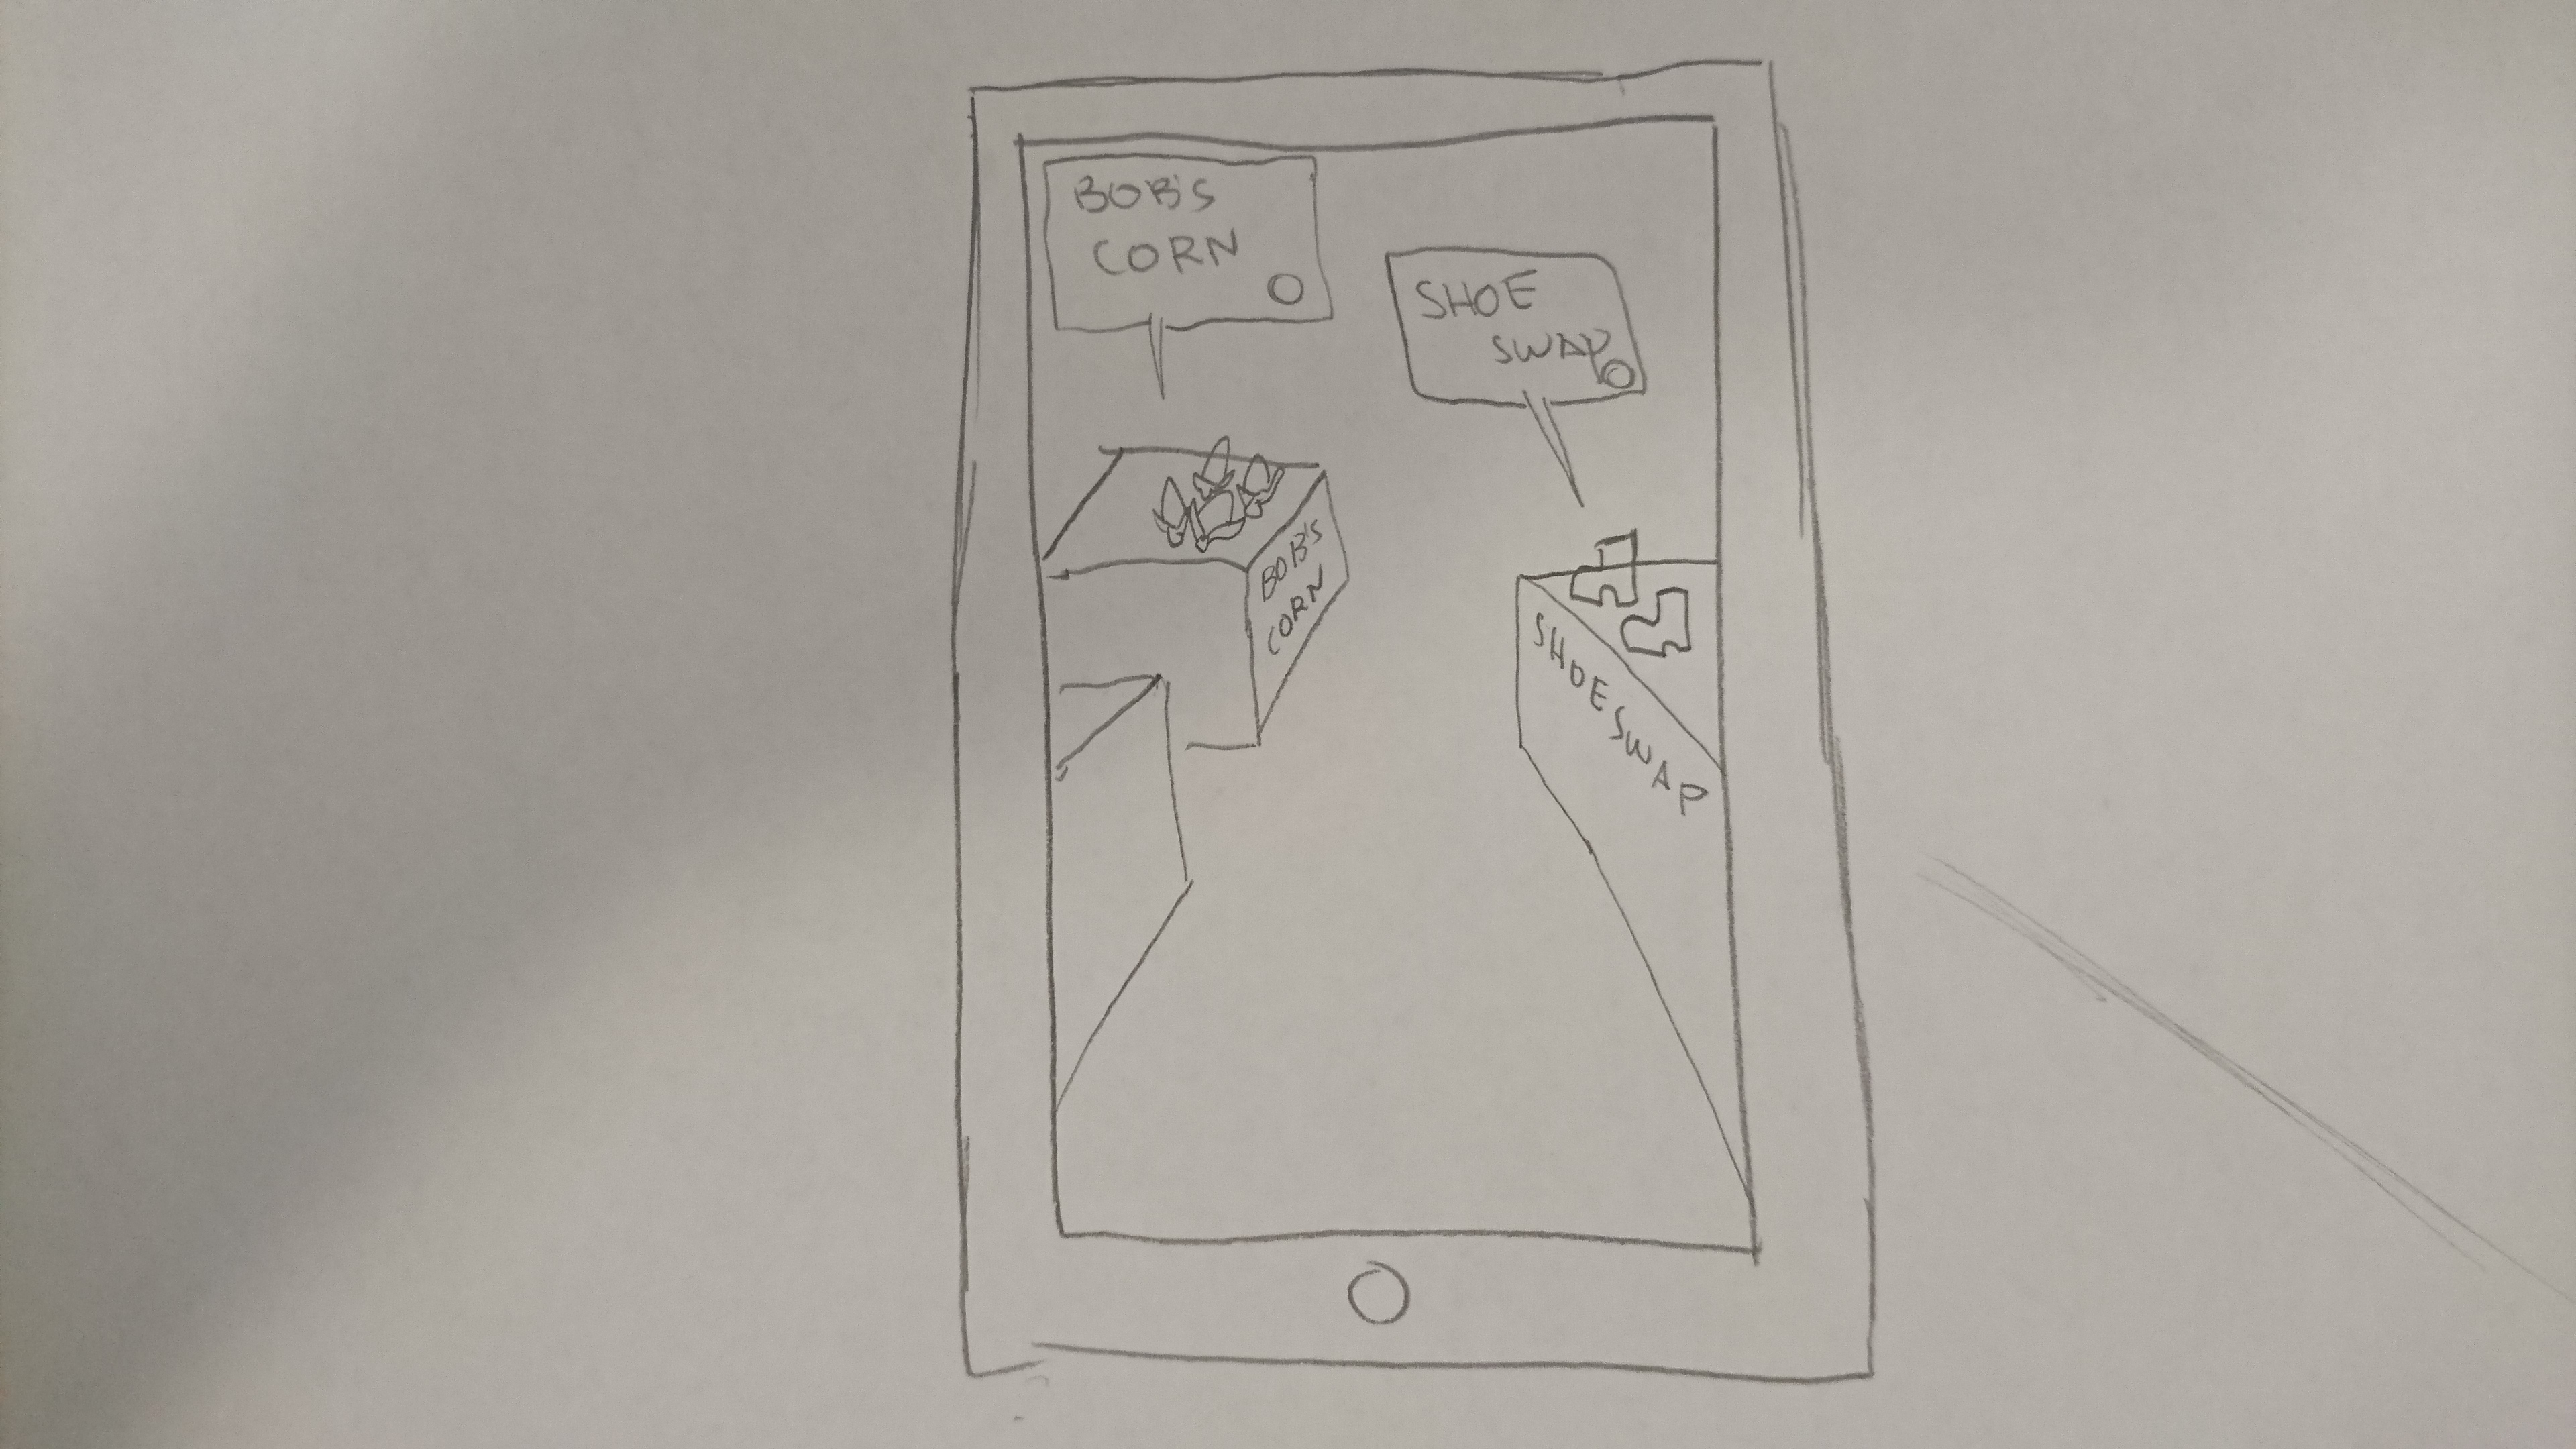 BOB'S
CORN
SHOE
SWAP
BOB'S
CORN
SHOE SWAP